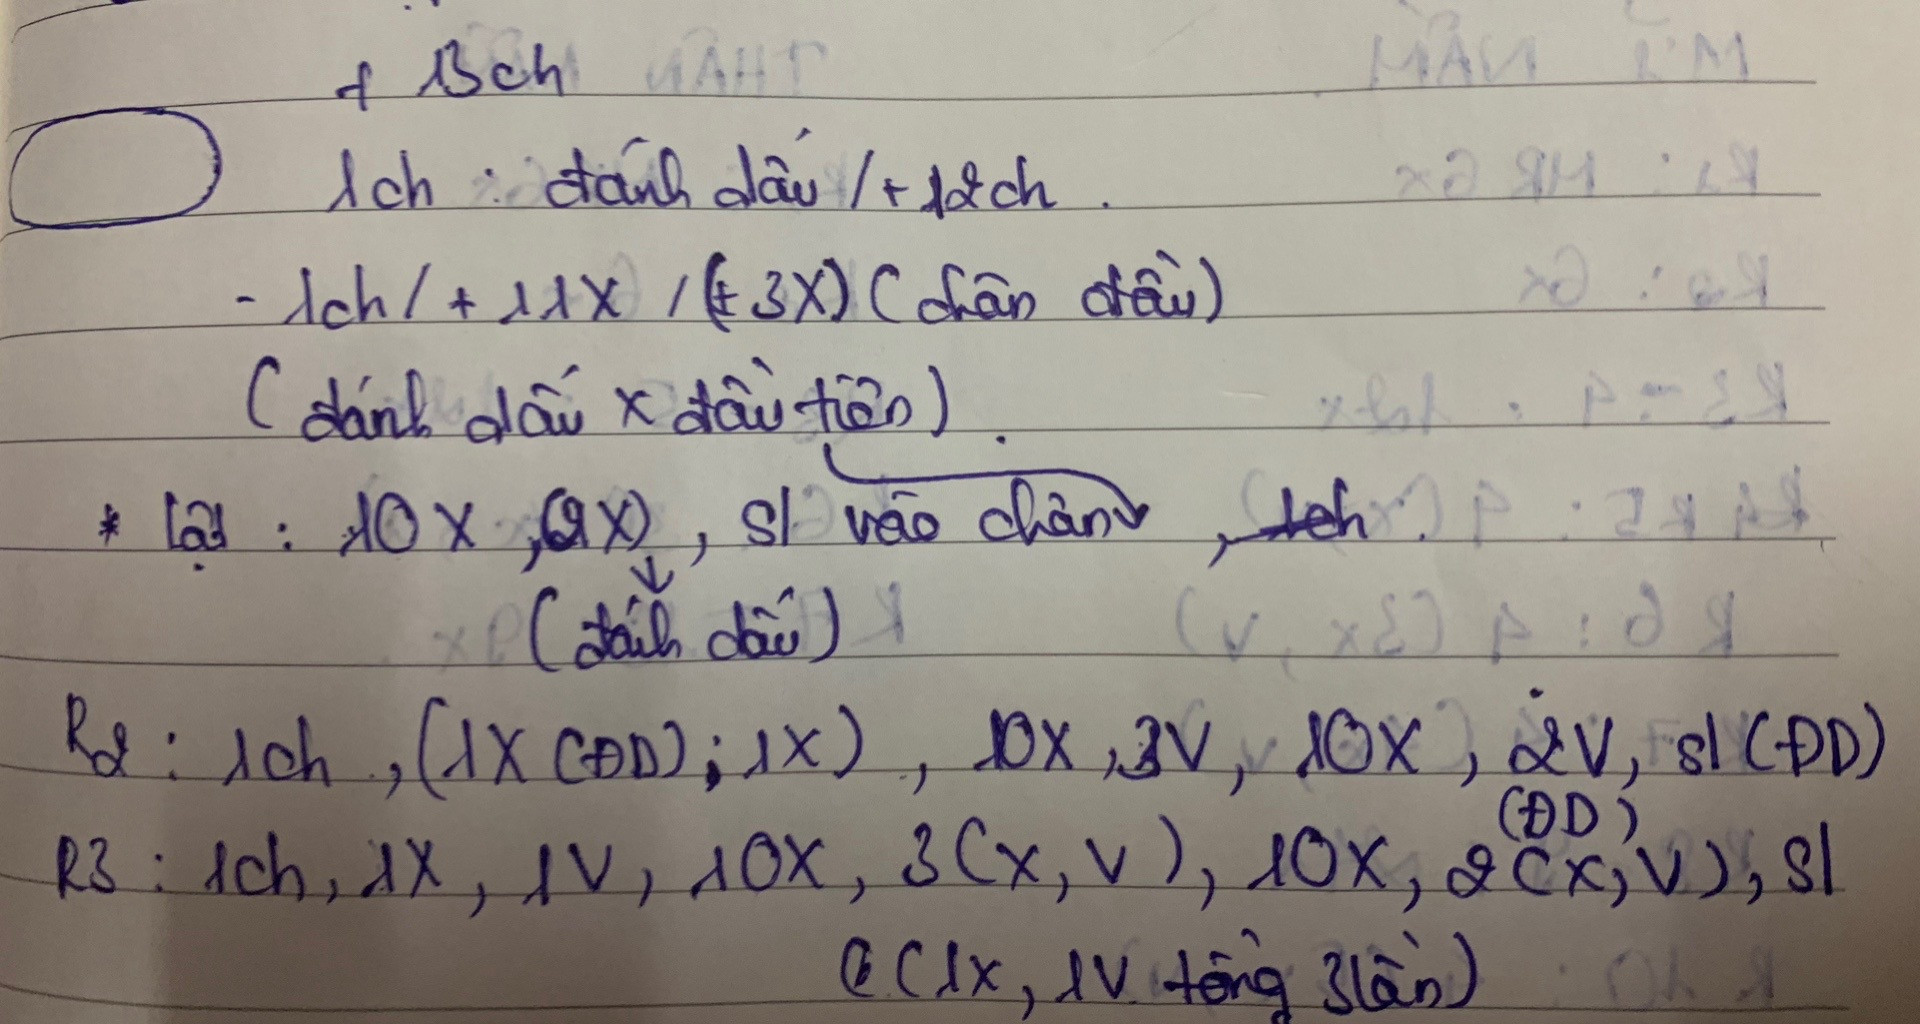 + 13ch
1ch : đánh dấu / + 12ch .
- 1ch / + 11X / (+ 3X) (chân đầu)
(đánh dấu x đầu tiên) .
* Lật : 10X , (2X) , sl vào chân , 1ch
(đánh dấu)
R2 : 1ch , (1X (ĐD) ; 1X) , 10X , 3V , 10X , 2V , sl (ĐD)
(ĐD)
R3 : 1ch , 1X , 1V , 10X , 3(X , V) , 10X , 2(X , V) , sl
(1X , 1V tổng 3 lần)